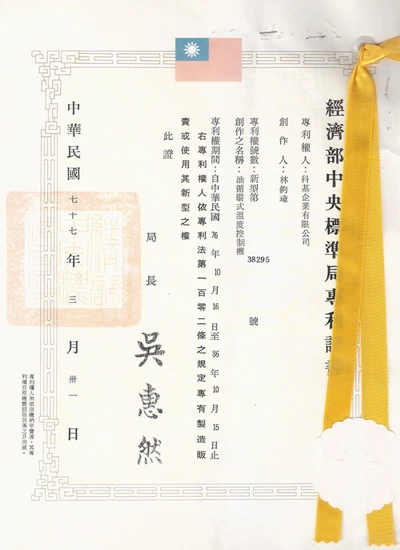 經濟部中央標準局專利證書
專利權人：科基企業有限公司
創作人：林鈞
專利權號數：新型第 38295 號
創作之名稱：油循環式溫度控制機
專利權期間：自中華民國 76 年 10 月 16 日至 86 年 10 月 15 日止
右專利權人依專利法第一百零二條之規定專有製造販
賣或使用其新型之權
此證
局長 吳惠然
中華民國七十七年三月卅一日
專利權人未依法繳納年費者，其專
利權自繳費期限屆滿之日消滅。